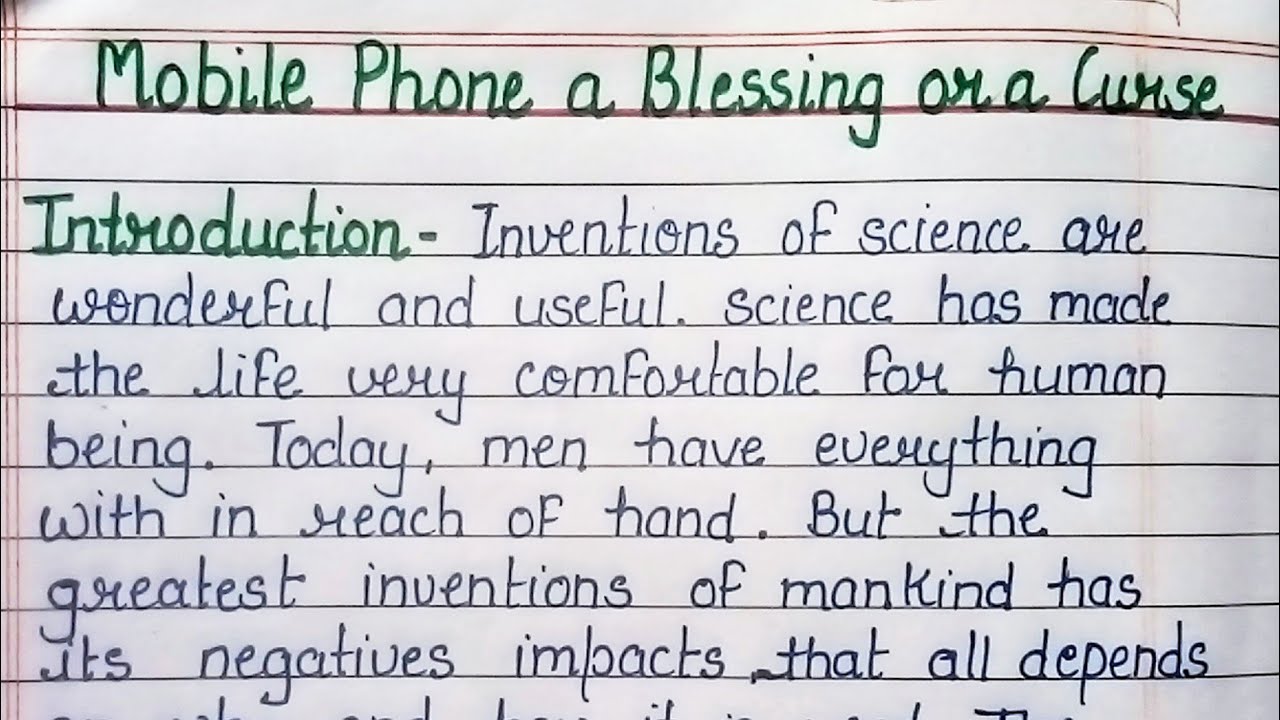 Mobile Phone a Blessing or a Curse
Introduction - Inventions of science are
wonderful and useful. science has made
the life very comfortable for human
being. Today, men have everything
with in reach of hand. But the
greatest inventions of mankind has
its negatives impacts, that all depends
and how it is